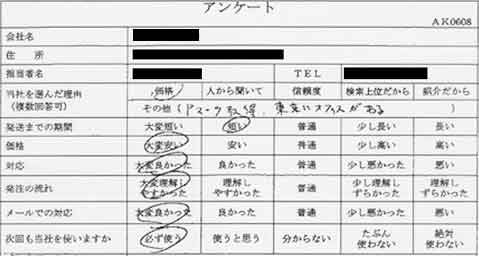 アンケート
AK0608
会社名
住　所
担当者名 TEL
当社を選んだ理由 価格 人から聞いて 信頼度 検索上位だから 紹介だから
(複数回答可) その他 (Pマーク取得、東京にオフィスがある )
発送までの期間 大変短い 短い 普通 少し長い 長い
価格 大変安い 安い 普通 少し高い 高い
対応 大変良かった 良かった 普通 少し悪かった 悪い
発注の流れ 大変理解しやすかった 理解しやすかった 普通 少し理解しずらかった 理解しずらかった
メールでの対応 大変良かった 良かった 普通 少し悪かった 悪い
次回も当社を使いますか 必ず使う 使うと思う 分からない たぶん使わない 絶対使わない